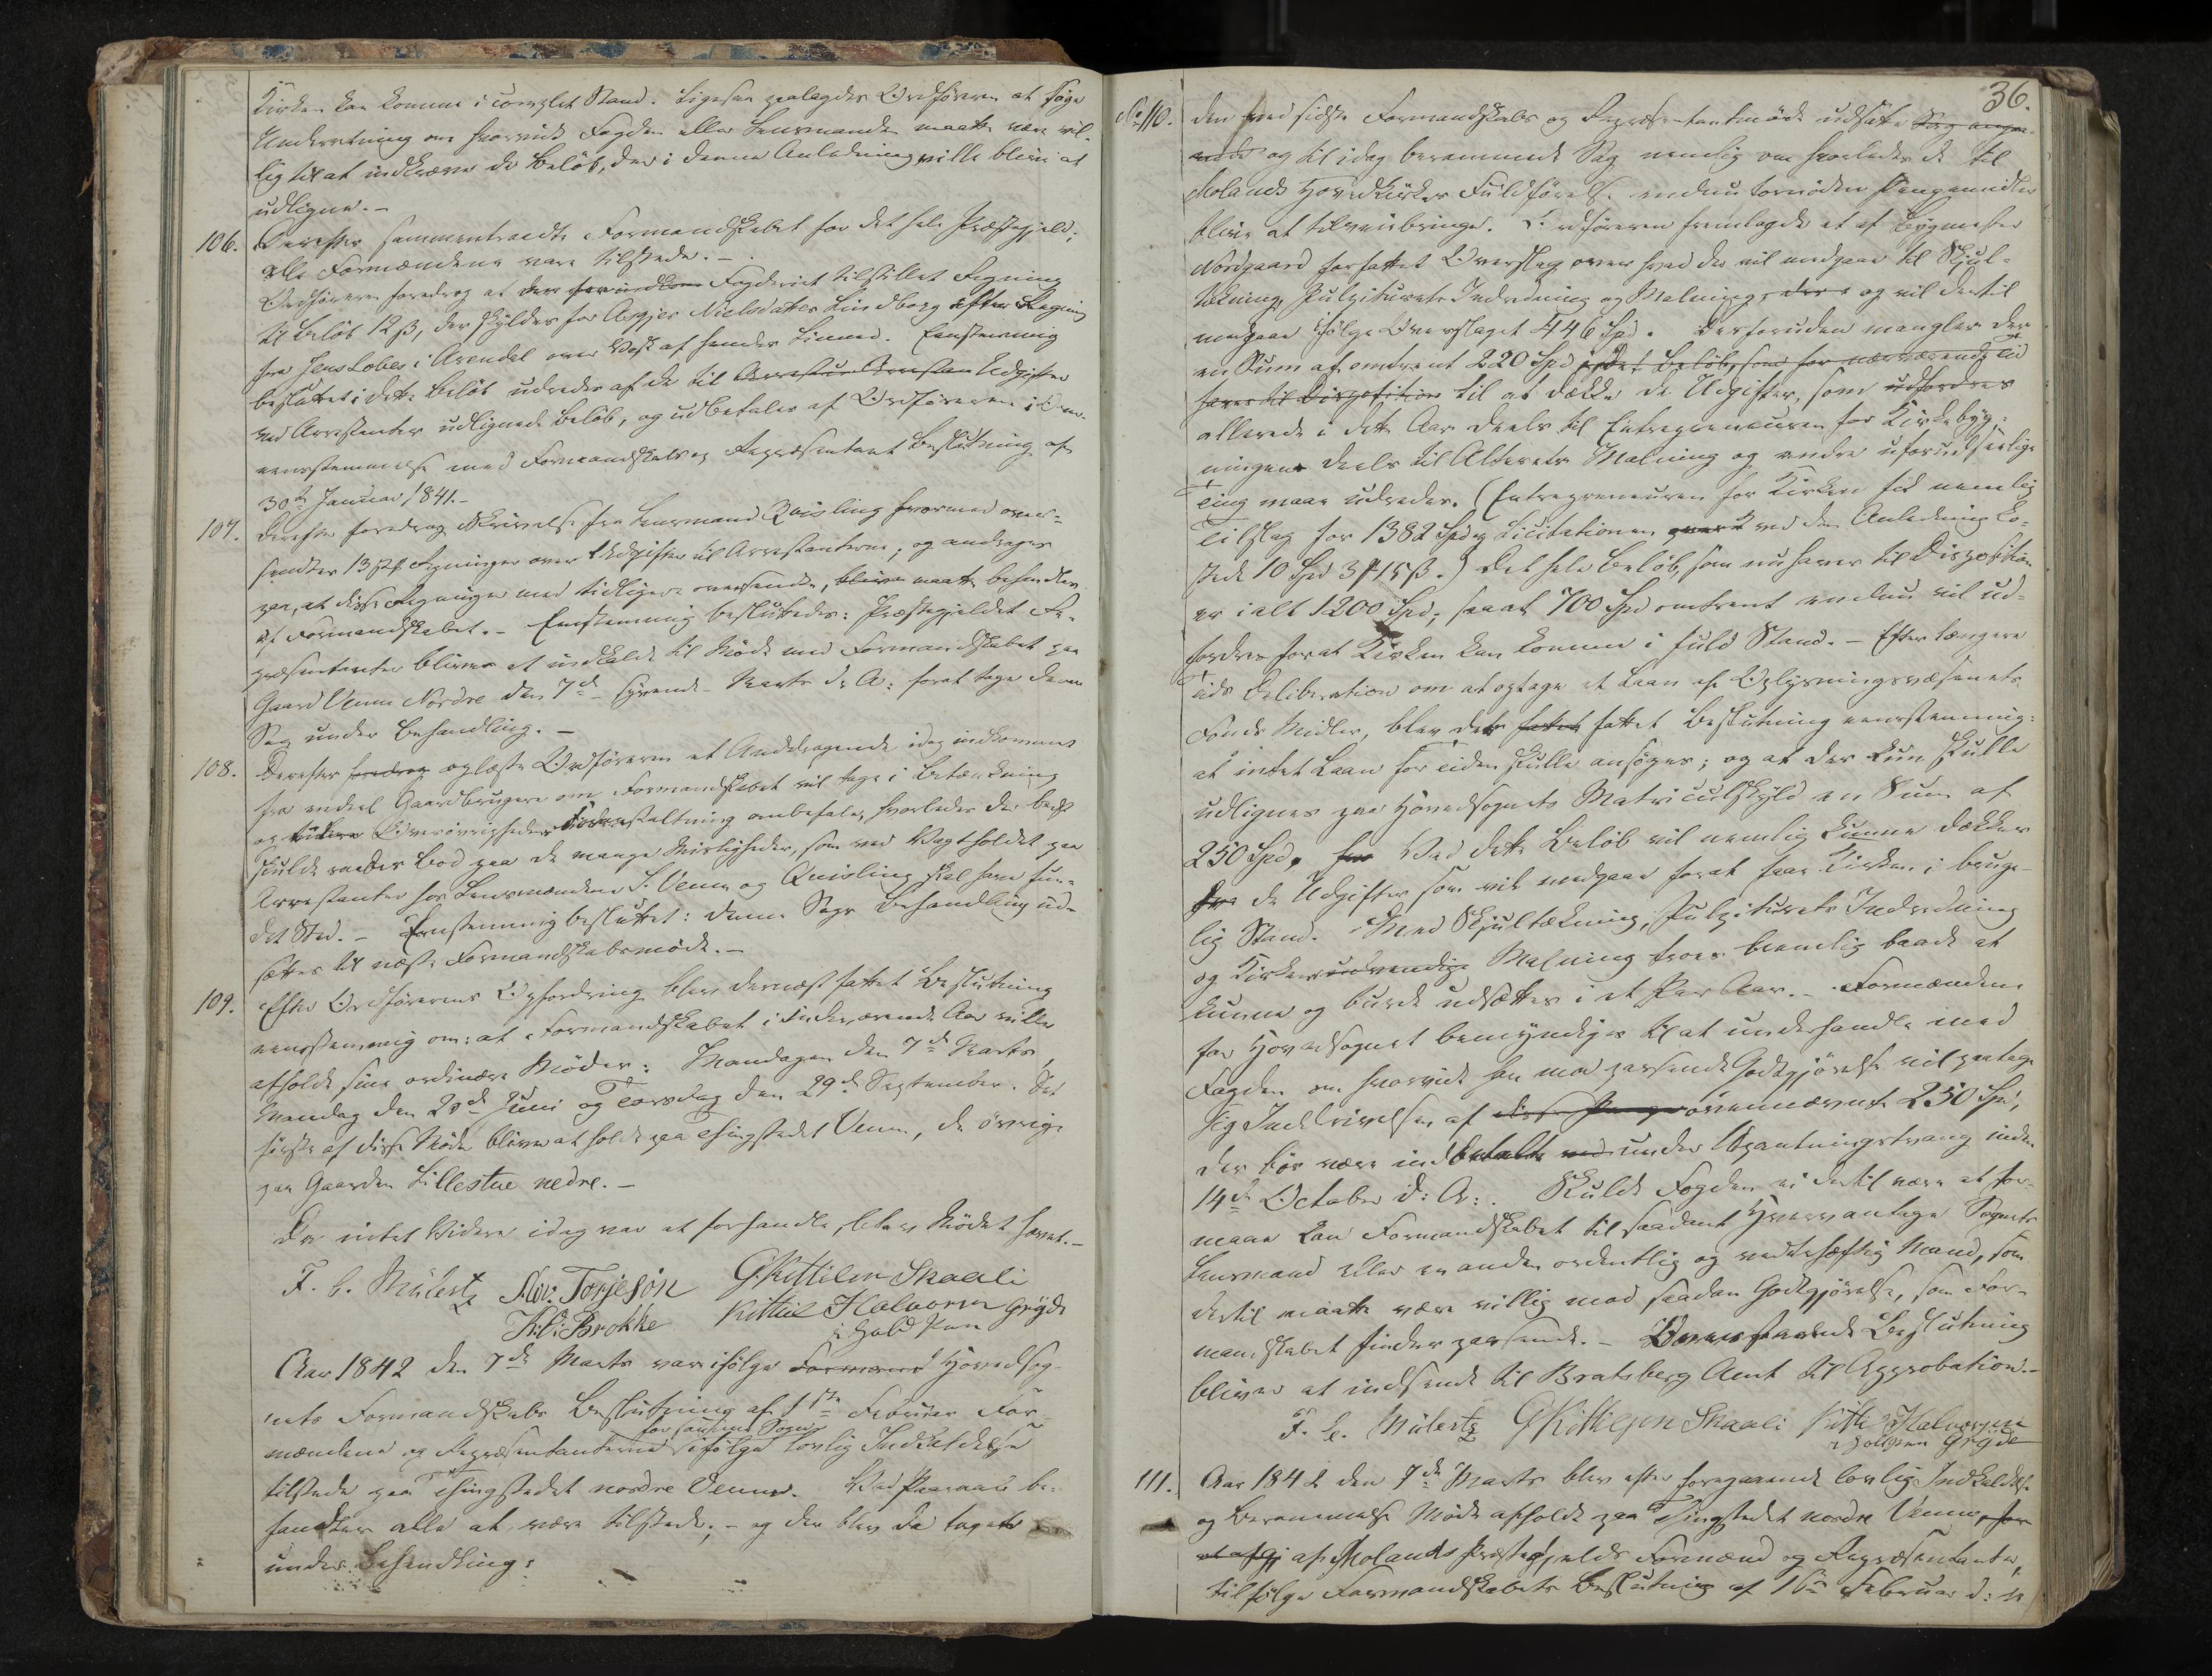 Kirken kan komme i complet Stand. Ligesaa paalagdes Ordføreren at søge
Underretning om hvorvidt Fogden eller Lensmanden maatte være vil-
lig til at indkræve de Beløb, der i denne Anledning ville blive at
udligne. -
106. Derefter sammentraadte Formandskabet for det hele Præstegjeld;
alle Formændene vare tilstede. -
Ordføreren foredrog at Fogderiet tilstillet Regning
til Beløb 12 ß, der skyldes for Aasjer Nielsdatter Lindborg efter Regning
fra Jens Lobes i Arendal over Vask af hendes Linned. Eenstemmig
besluttet: dette Beløb udredes af de til Udgifter
ved Arrestanter udlignede Beløb, og udbetales af Ordføreren i Over-
eensstemmelse med Formandskabs og Repræsentant Beslutning af
30te Januar 1841. -
107. Derefter foredrog Skrivelse fra Lensmand Qvisling hvormed over-
sendtes 13 Regninger over Udgifter til Arrestanterne, og androges
paa, at disse Regninger med tidligere oversendte, maatte behandles
af Formandskabet. - Eenstemmig besluttedes: Præstegjeldets Re-
præsentanter bliver at indkalde til Møde med Formandskabet paa
Gaard Veum Nordre den 7de - syvende - Marts d. A: forat tage denne
Sag under Behandling. -
108. Derefter foredrog oplæste Ordføreren et Andragende idag indkommet
fra endeel Gaardbrugere om Formandskabet vil tage i Betænkning
og Overøvrighedens Foranstaltning anbefale, hvorledes der bedst
skulde raades Bod paa de mange Misligheder, som ved Vagtholdet paa
Arrestanter hos Lensmændene S. Veum og Quisling skal have fun-
det Sted. - Eenstemmig besluttet: denne Sags Behandling ud-
sættes til næste Formandskabsmøde. -
109. Efter Ordførerens Opfordring blev dernæst fattet Beslutning
eenstemmig om: at Formandskabet i indeværende Aar ville
afholde sine ordinære Møder: Mandagen den 7de Marts,
Mandag den 20de Juni og Torsdag den 29de September. Det
første af disse Møder bliver at holde paa Thingstedet Veum, de øvrige
paa Gaarden Lillestue nedre. -
Da intet Videre idag var at forhandle, blev Mødet hævet. -
F. C. Mülertz Aw: Torjesøn G. Kittilsen Skaali
K: Brokke Kittil Halvorsen Gryde
i hold Pen
Aar 1842 den 7de Marts var ifølge Formand Hovedsog-
nets Formandskabs Beslutning af 1ste Februar For-
for samme Sogn
mændene og Repræsentanterne ifølge lovlig Indkaldelse
tilstede paa Thingstedet nordre Veum. Ved Paaraab be-
fandtes alle at være tilstede; - og der blev da taget
under Behandling:
36.
No 110. Den ved sidste Formandskabs og Repræsentantmøde udsatte Sag angaa-
ende og til idag berammede Sag nemlig om hvorledes de til
Molands Hovedkirkes Fuldførelse endnu fornødne Pengemidler
blive at tilveiebringe. Ordføreren fremlagde et af Bygmester
Nordgaard forfattet Overslag over hvad der vil medgaae til Skjul-
tækning, Pulpiturets Indredning og Malning, og vil dertil
medgaae ifølge Overslaget 446 Spd. Desforuden mangler der
en Sum af omtrent 220 Spd i det Beløb, som for nærværende Tid
haves til Disposition til at dække de Udgifter, som udfordres
allerede i dette Aar deels til Entrepreneuren for Kirkebyg-
ningen deels til Alterets Malning og andre uforudseelige
Ting maae udredes. (Entrepreneuren for Kirken fik nemlig
Tilslag for 1382 Spd og Licitationen ved den Anledning ko-
stede 10 Spd 3 # 15 ß.) Det hele Beløb, som nu haves til Disposition
er i alt 1200 Spd; saa at 700 Spd omtrent endnu vil ud-
fordres forat Kirken kan komme i fuld Stand. - Efter længere
Tids Deliberation om at optage et Laan af Oplysningsvæsenets
Fonds Midler, blev der fattet Beslutning eenstemmig:
at intet Laan for Tiden skulle ansøges; og at der kun skulle
udlignes paa Hovedsognets Matriculskyld en Sum af
250 Spd. Ved dette Beløb vil nemlig kunne dækkes
de Udgifter som vil medgaae forat faae Kirken i bruge-
lig Stand. Med Skjultækning, Pulpiturets Indredning
og Kirkens udvendige Malning troes nemlig baade at
kunne og burde udsættes i et Par Aar. - Formændene
for Hovedsognet bemyndiges til at underhandle med
Fogden om hvorvidt han mod passende Godtgjørelse vil paatage
sig Inddrivelsen af ovennævnte 250 Spd,
der bør være indbetalte under Udpantningstvang inden
14de October d: A:. Skulde Fogden ei dertil være at for-
maae kan Formandskabet til saadant Hverv antage Sognets
Lensmand eller en anden ordentlig og vederhæftig Mand, som
dertil maatte være villig mod saadan Godtgjørelse, som For-
mandskabet finder passende. - Ovenstaaende Beslutning
bliver at indsende til Bratsberg Amt til Approbation. -
F. C. Mülertz G Kittilsen Skaali Kittil Halvorsen
i hold Pen Gryde
111. Aar 1842 den 7de Marts blev efter foregaaende lovlig Indkaldelse
og Berammelse Møde afholdt paa Thingstedet nordre Veum, for
af Molands Præstegjelds Formænd og Repræsentanter,
tilfølge Formandskabets Beslutning af 1ste Februar d: A